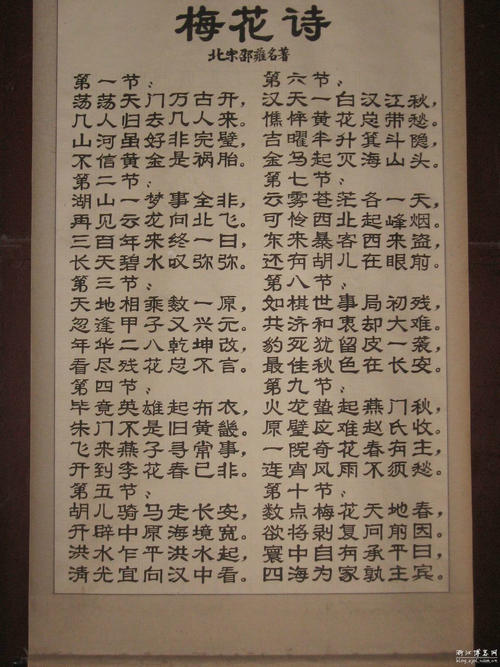 梅花诗
北宋邵雍名著
第一节：
荡荡天门万古开，
几人归去几人来。
山河虽好非完璧，
不信黄金是祸胎。
第二节：
湖山一梦事全非，
再见云龙向北飞。
三百年来终一日，
长天碧水叹弥弥。
第三节：
天地相乘数一原，
忽逢甲子又兴元。
年华二八乾坤改，
看尽残花总不言。
第四节：
毕竟英雄起布衣，
朱门不是旧黄畿。
飞来燕子寻常事，
开到李花春已非。
第五节：
胡儿骑马走长安，
开辟中原海境宽。
洪水乍平洪水起，
清光宜向汉中看。
第六节：
汉天一白汉江秋，
憔悴黄花总带愁。
吉曜半升箕斗隐，
金乌起灭海山头。
第七节：
云雾苍茫各一天，
可怜西北起峰烟。
东来暴客西来盗，
还有胡儿在眼前。
第八节：
如棋世事局初残，
共济和衷却大难。
豹死犹留皮一袭，
最佳秋色在长安。
第九节：
火龙蛰起燕门秋，
原璧应难赵氏收。
一院奇花春有主，
连宵风雨不须愁。
第十节：
数点梅花天地春，
欲将剥复问前因。
寰中自有承平日，
四海为家孰主宾。
浙江博客网